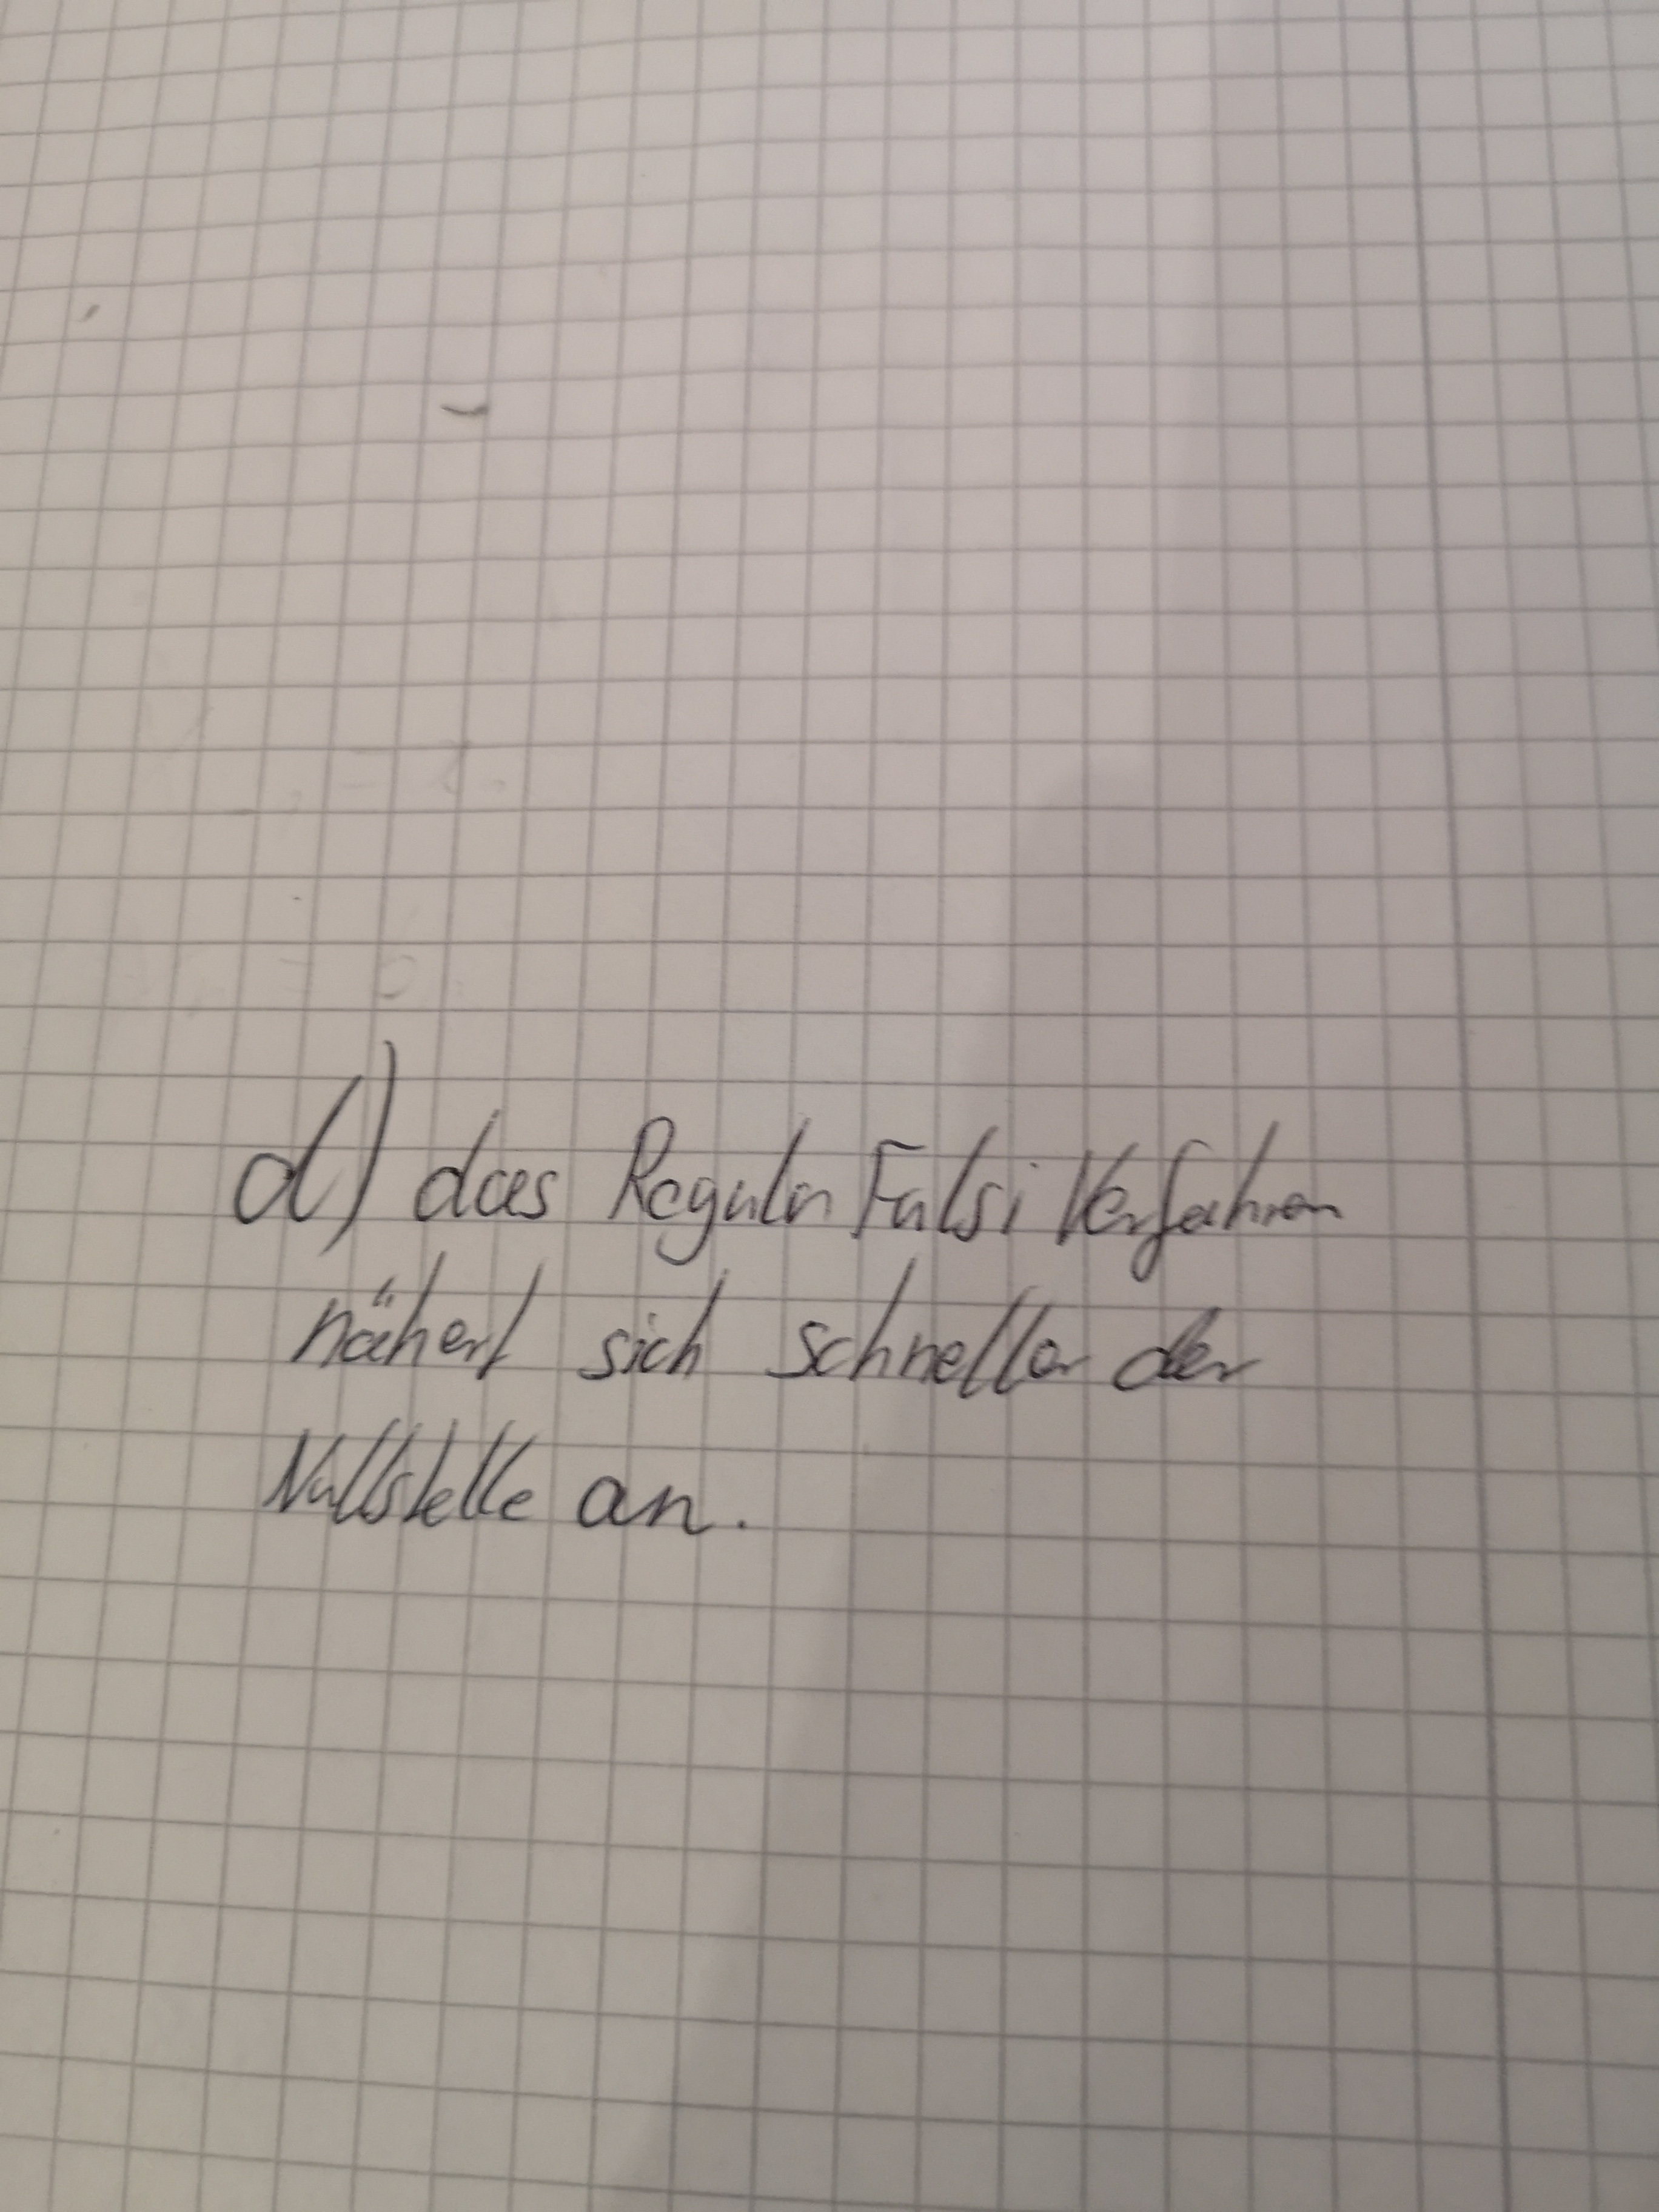 d) das Regula Falsi Verfahren
nähert sich schneller der
Nullstelle an.